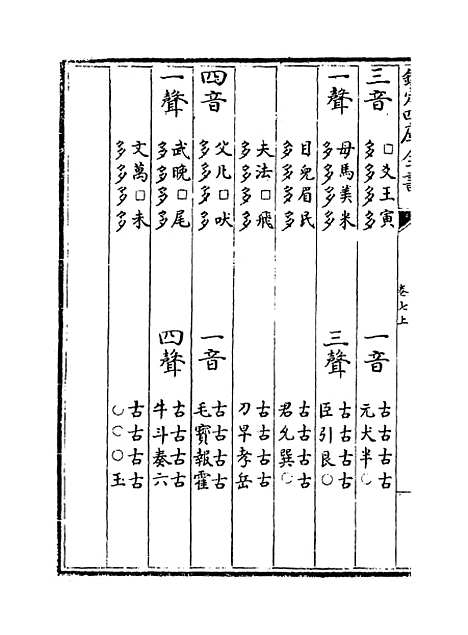 欽定四庫全書
卷七上
三音 □爻王寅
多多多多
一音 古古古古
元犬半○
一聲 母馬美米
多多多多
三聲 古古古古
臣引艮○
目皃眉民
多多多多
古古古古
君允巽○
夫法□飛
多多多多
古古古古
刀早孝岳
四音 父凡□吠
多多多多
一音 古古古古
毛寳報霍
一聲 武晚□尾
多多多多
四聲 古古古古
牛斗奏六
文萬□未
多多多多
古古古古
○○○玉